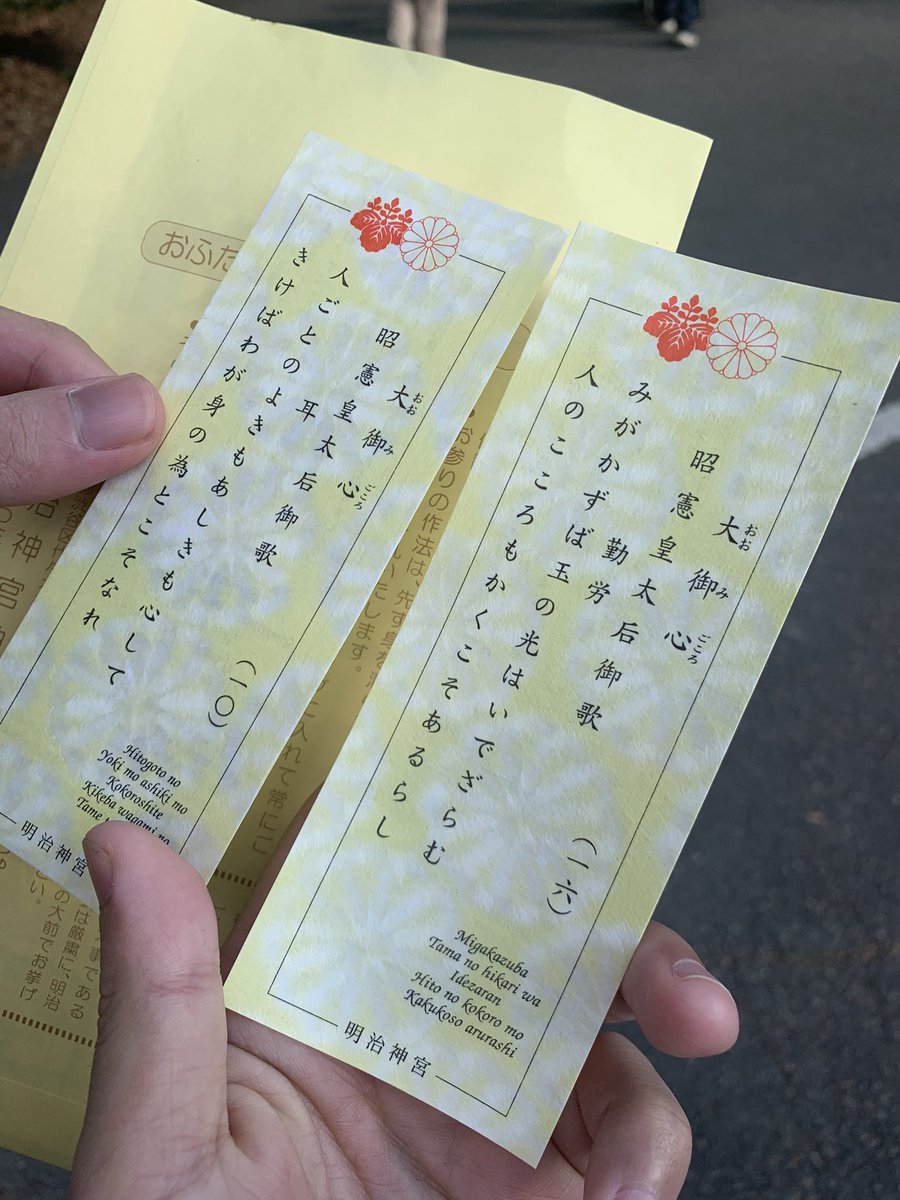 大御心
おおみごころ
昭憲皇太后御歌
勤労
みがかずば玉の光はいでざらむ
人のこころもかくこそあるらし
(一六)
Migakazuba
Tama no hikari wa
Idezaran
Hito no kokoro mo
Kakukoso arurashi
明治神宮
大御心
おおみごころ
昭憲皇太后御歌
耳
人ごとのよきもあしきも心して
きけばわが身の為とこそなれ
(一〇)
Hitogoto no
Yoki mo ashiki mo
Kokoroshite
Kikeba wagami no
Tame
明治神宮
おふだ
お参りの作法は、先ず
いたします。
に入れて常にご
神宮
は厳粛に、明治
の大前でお挙げ